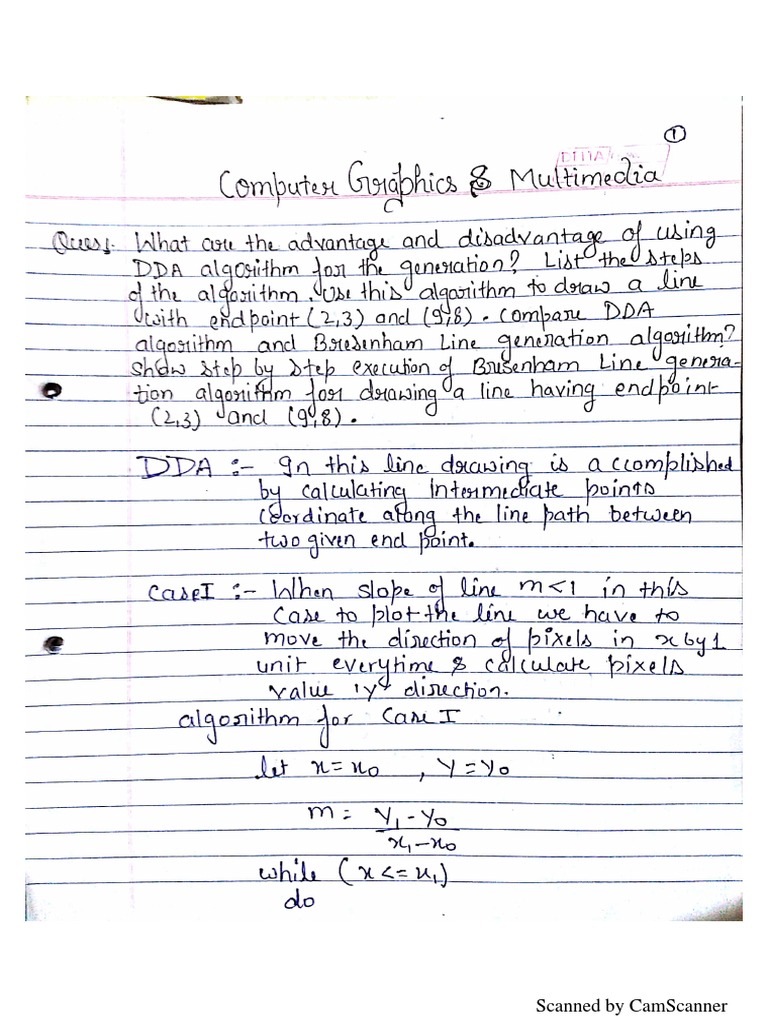 1
Computer Graphics & Multimedia
Ques:- What are the advantage and disadvantage of using
DDA algorithm for the generation? List the steps
of the algorithm. Use this algorithm to draw a line
with endpoint (2,3) and (9,8). Compare DDA
algorithm and Bresenham Line generation algorithm?
Show step by step execution of Bresenham Line genera-
tion algorithm for drawing a line having endpoint
(2,3) and (9,8).
DDA :- In this line drawing is accomplished
by calculating Intermediate points
coordinate along the line path between
two given end point.
Case I :- When slope of line m<1 in this
case to plot the line we have to
move the direction of pixels in x by 1
unit everytime & calculate pixels
value 'y' direction.
algorithm for Case I
let x = x0 , y = y0
m = y1 - y0
x1 - x0
while (x <= x1)
do
Scanned by CamScanner